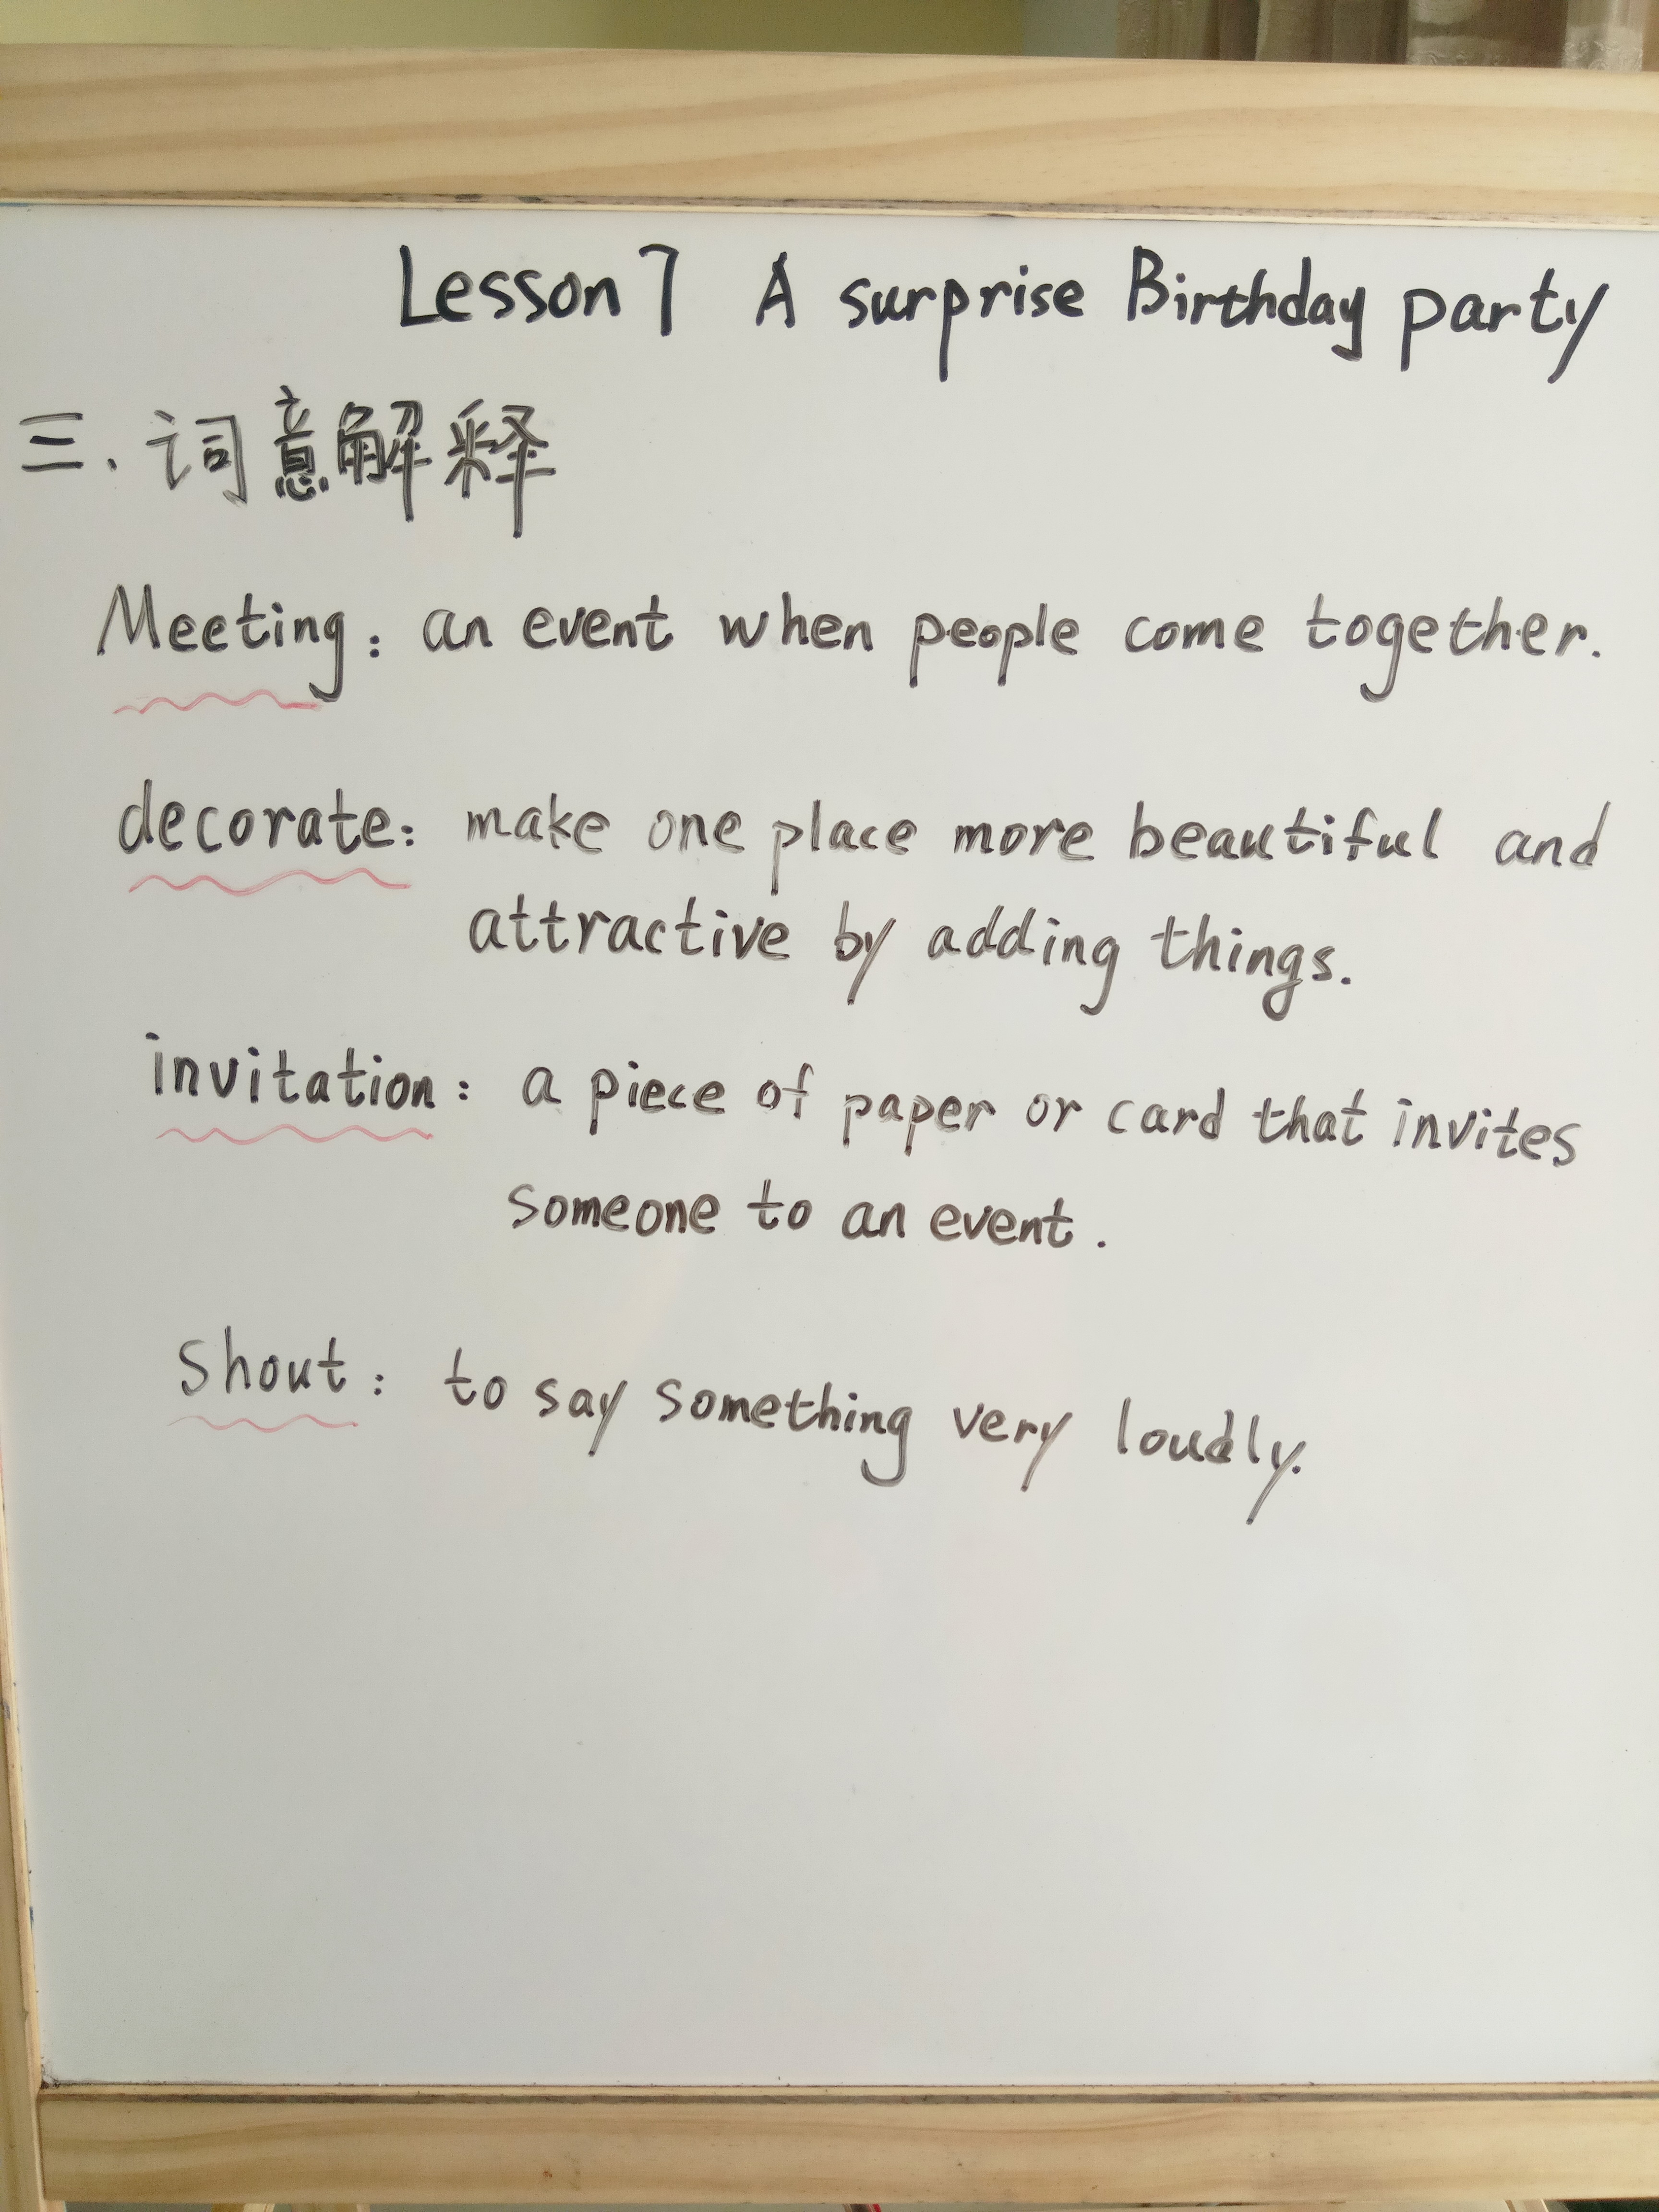 Lesson 7 A surprise Birthday party
三. 词意解释
Meeting: an event when people come together.
decorate: make one place more beautiful and
attractive by adding things.
invitation: a piece of paper or card that invites
someone to an event.
shout: to say something very loudly.